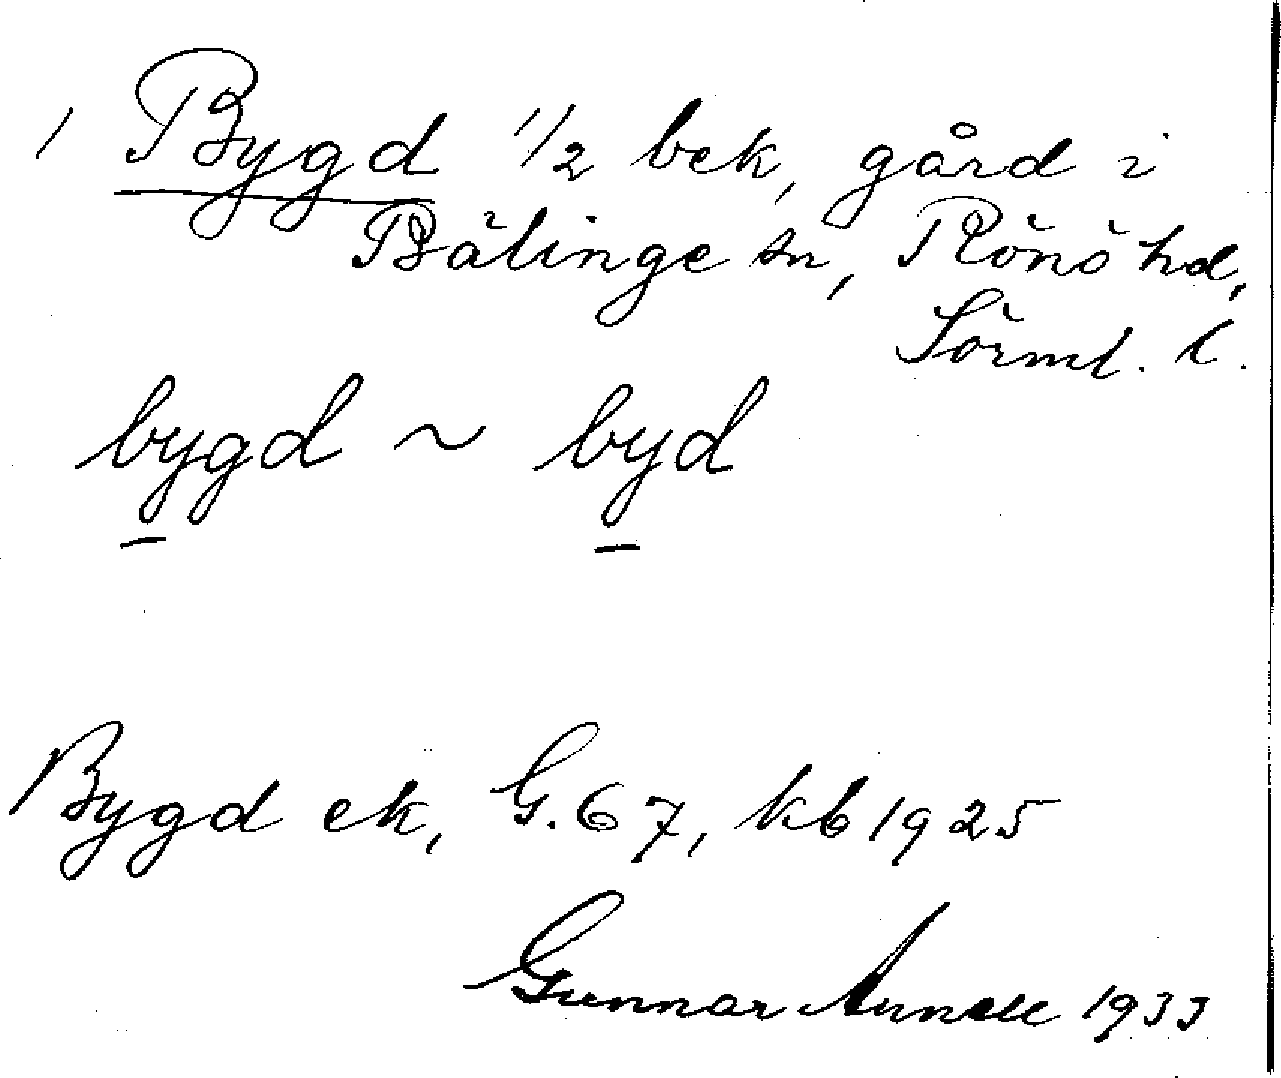 / Bygd 1/2 bek, gård i
Bälinge sn, Rönö hd,
Sörml. l.
bygd ~ byd
Bygd ek, G.67, kb 1925
Gunnar 1933